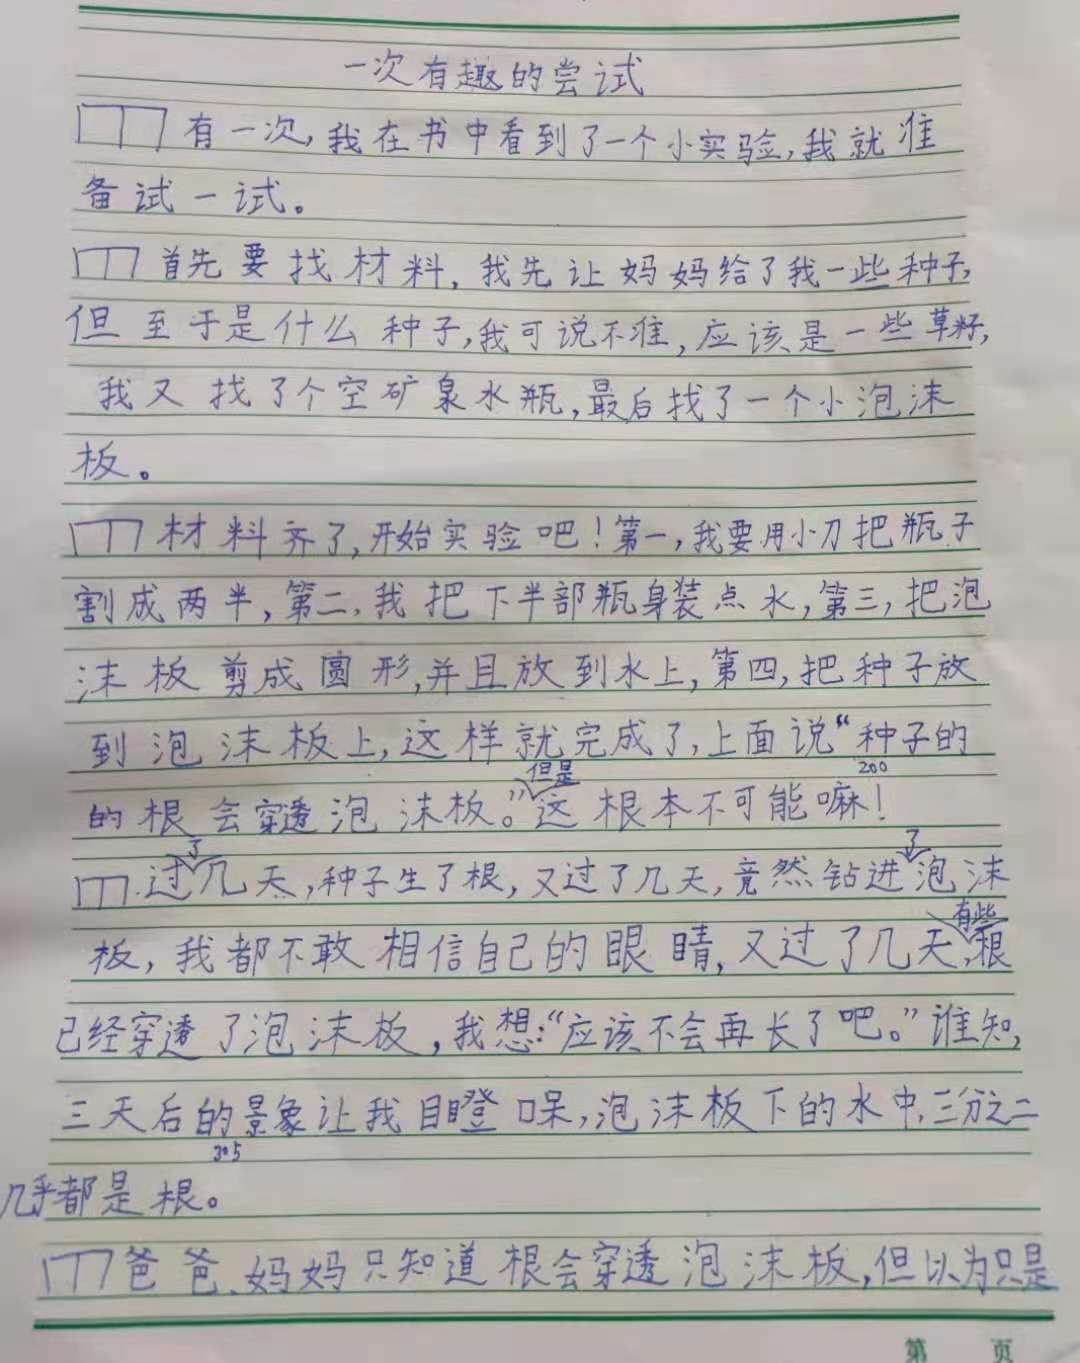 一次有趣的尝试
有一次,我在书中看到了一个小实验,我就准
备试一试。
首先要找材料,我先让妈妈给了我一些种子,
但至于是什么种子,我可说不准,应该是一些草籽,
我又找了个空矿泉水瓶,最后找了一个小泡沫
板。
材料齐了,开始实验吧!第一,我要用小刀把瓶子
割成两半,第二,我把下半部瓶身装点水,第三,把泡
沫板剪成圆形,并且放到水上,第四,把种子放
到泡沫板上,这样就完成了,上面说“种子的
200
的根会穿透泡沫板。”但是这根本不可能嘛!
过了几天,种子生了根,又过了几天,竟然钻进了泡沫
板,我都不敢相信自己的眼睛,又过了几天,有些根
已经穿透了泡沫板,我想:“应该不会再长了吧。”谁知,
三天后的景象让我目瞪口呆,泡沫板下的水中,三分之二
305
几乎都是根。
爸爸、妈妈只知道根会穿透泡沫板,但以为只是
第 页